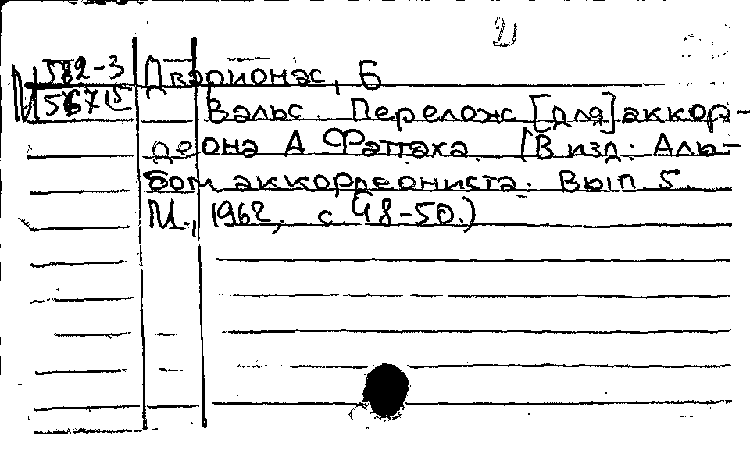 2)
М 582-3 Дварионас, Б
567 15 Вальс. Перелож [для] аккор-
деона А Фаттаха. (В изд: Аль-
бом аккордеониста. Вып 5
М., 1962, с 48-50.)